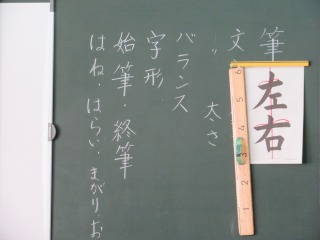 筆
文
〃 太さ
バランス
字形
始筆・終筆
はね・はらい・まがり・お
左右
6
5
4
3
2
1